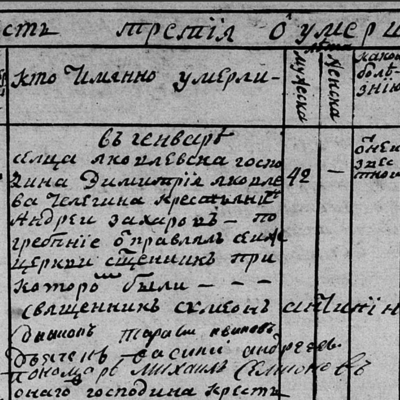 сть третія о умерш
кто имянно умерли
лѣта
мужеска
женска
какою
болѣ
знию
въ генварѣ
села яковлевска госпо
дина Димитрія яковле
ва Челегина крестьянинъ
Андреи захаровъ – по
42 –
гребение отправлялъ сеи же
церкви священникъ при
которомъ были – – –
священникъ симеонъ
диаконъ тарасии ивановъ
дьячекъ василии андреевъ
пономарь михаилъ семионовъ
онаго господина кресть